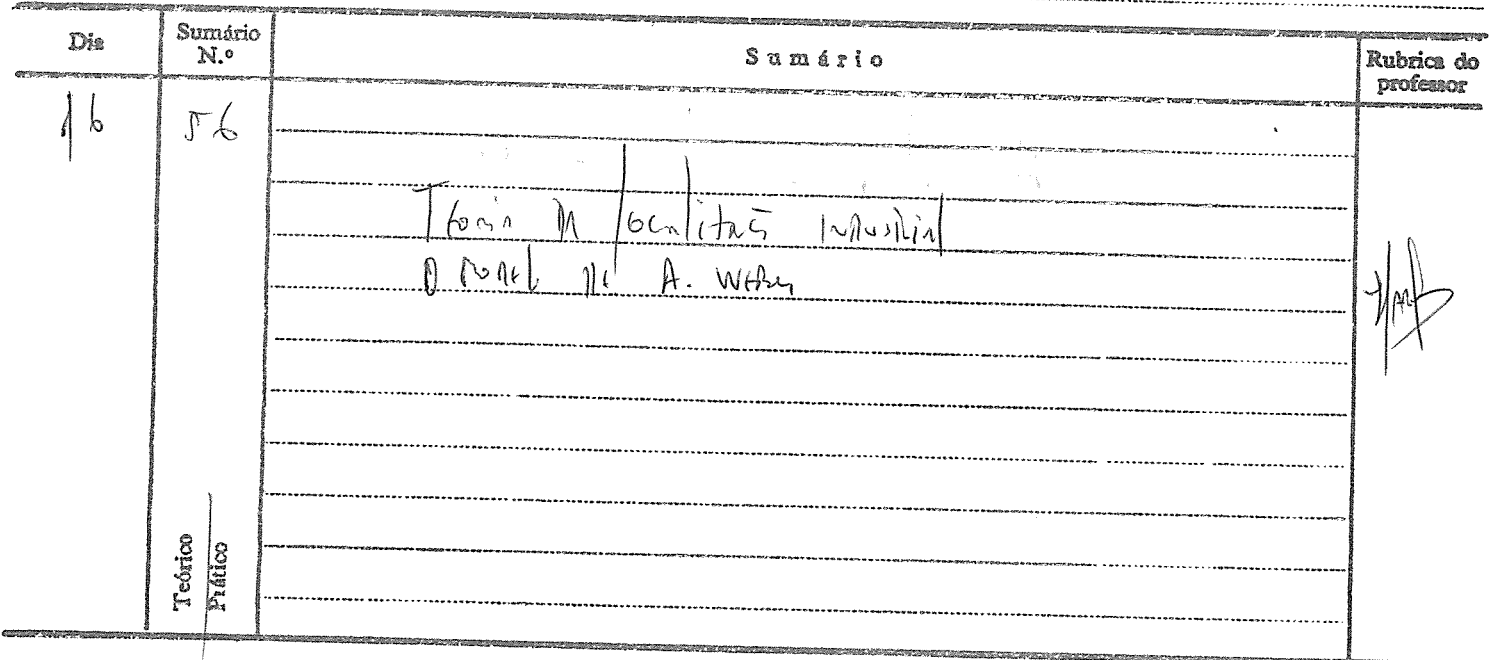 Dia
Sumário
N.º
Sumário
Rubrica do
professor
16
56
Teoria da localização industrial
O model de A. Weber
Teórico
Prático